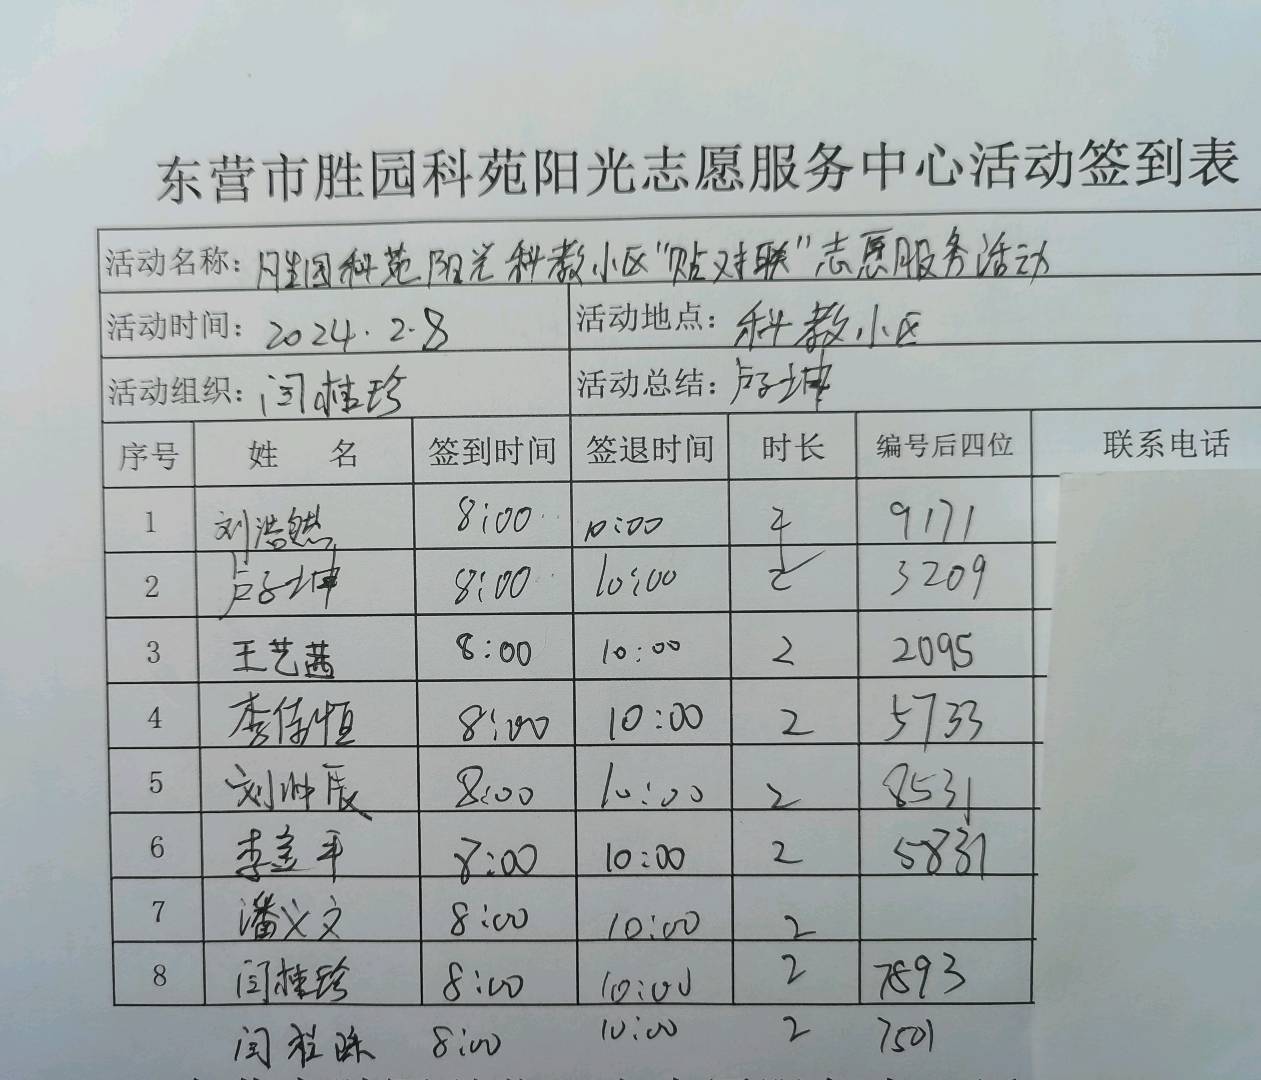 东营市胜园科苑阳光志愿服务中心活动签到表
活动名称：胜园科苑阳光科教小区“贴对联”志愿服务活动
活动时间：2024.2.8 活动地点：科教小区
活动组织：闫桂珍 活动总结：卢子坤
序号 姓 名 签到时间 签退时间 时长 编号后四位 联系电话
1 刘浩然 8:00 10:00 2 9171
2 卢子坤 8:00 10:00 2 3209
3 王艺茜 8:00 10:00 2 2095
4 李佳恒 8:00 10:00 2 5733
5 刘帅辰 8:00 10:00 2 8531
6 李金平 8:00 10:00 2 5831
7 潘义文 8:00 10:00 2
8 闫桂珍 8:00 10:00 2 7893
闫 8:00 10:00 2 7501